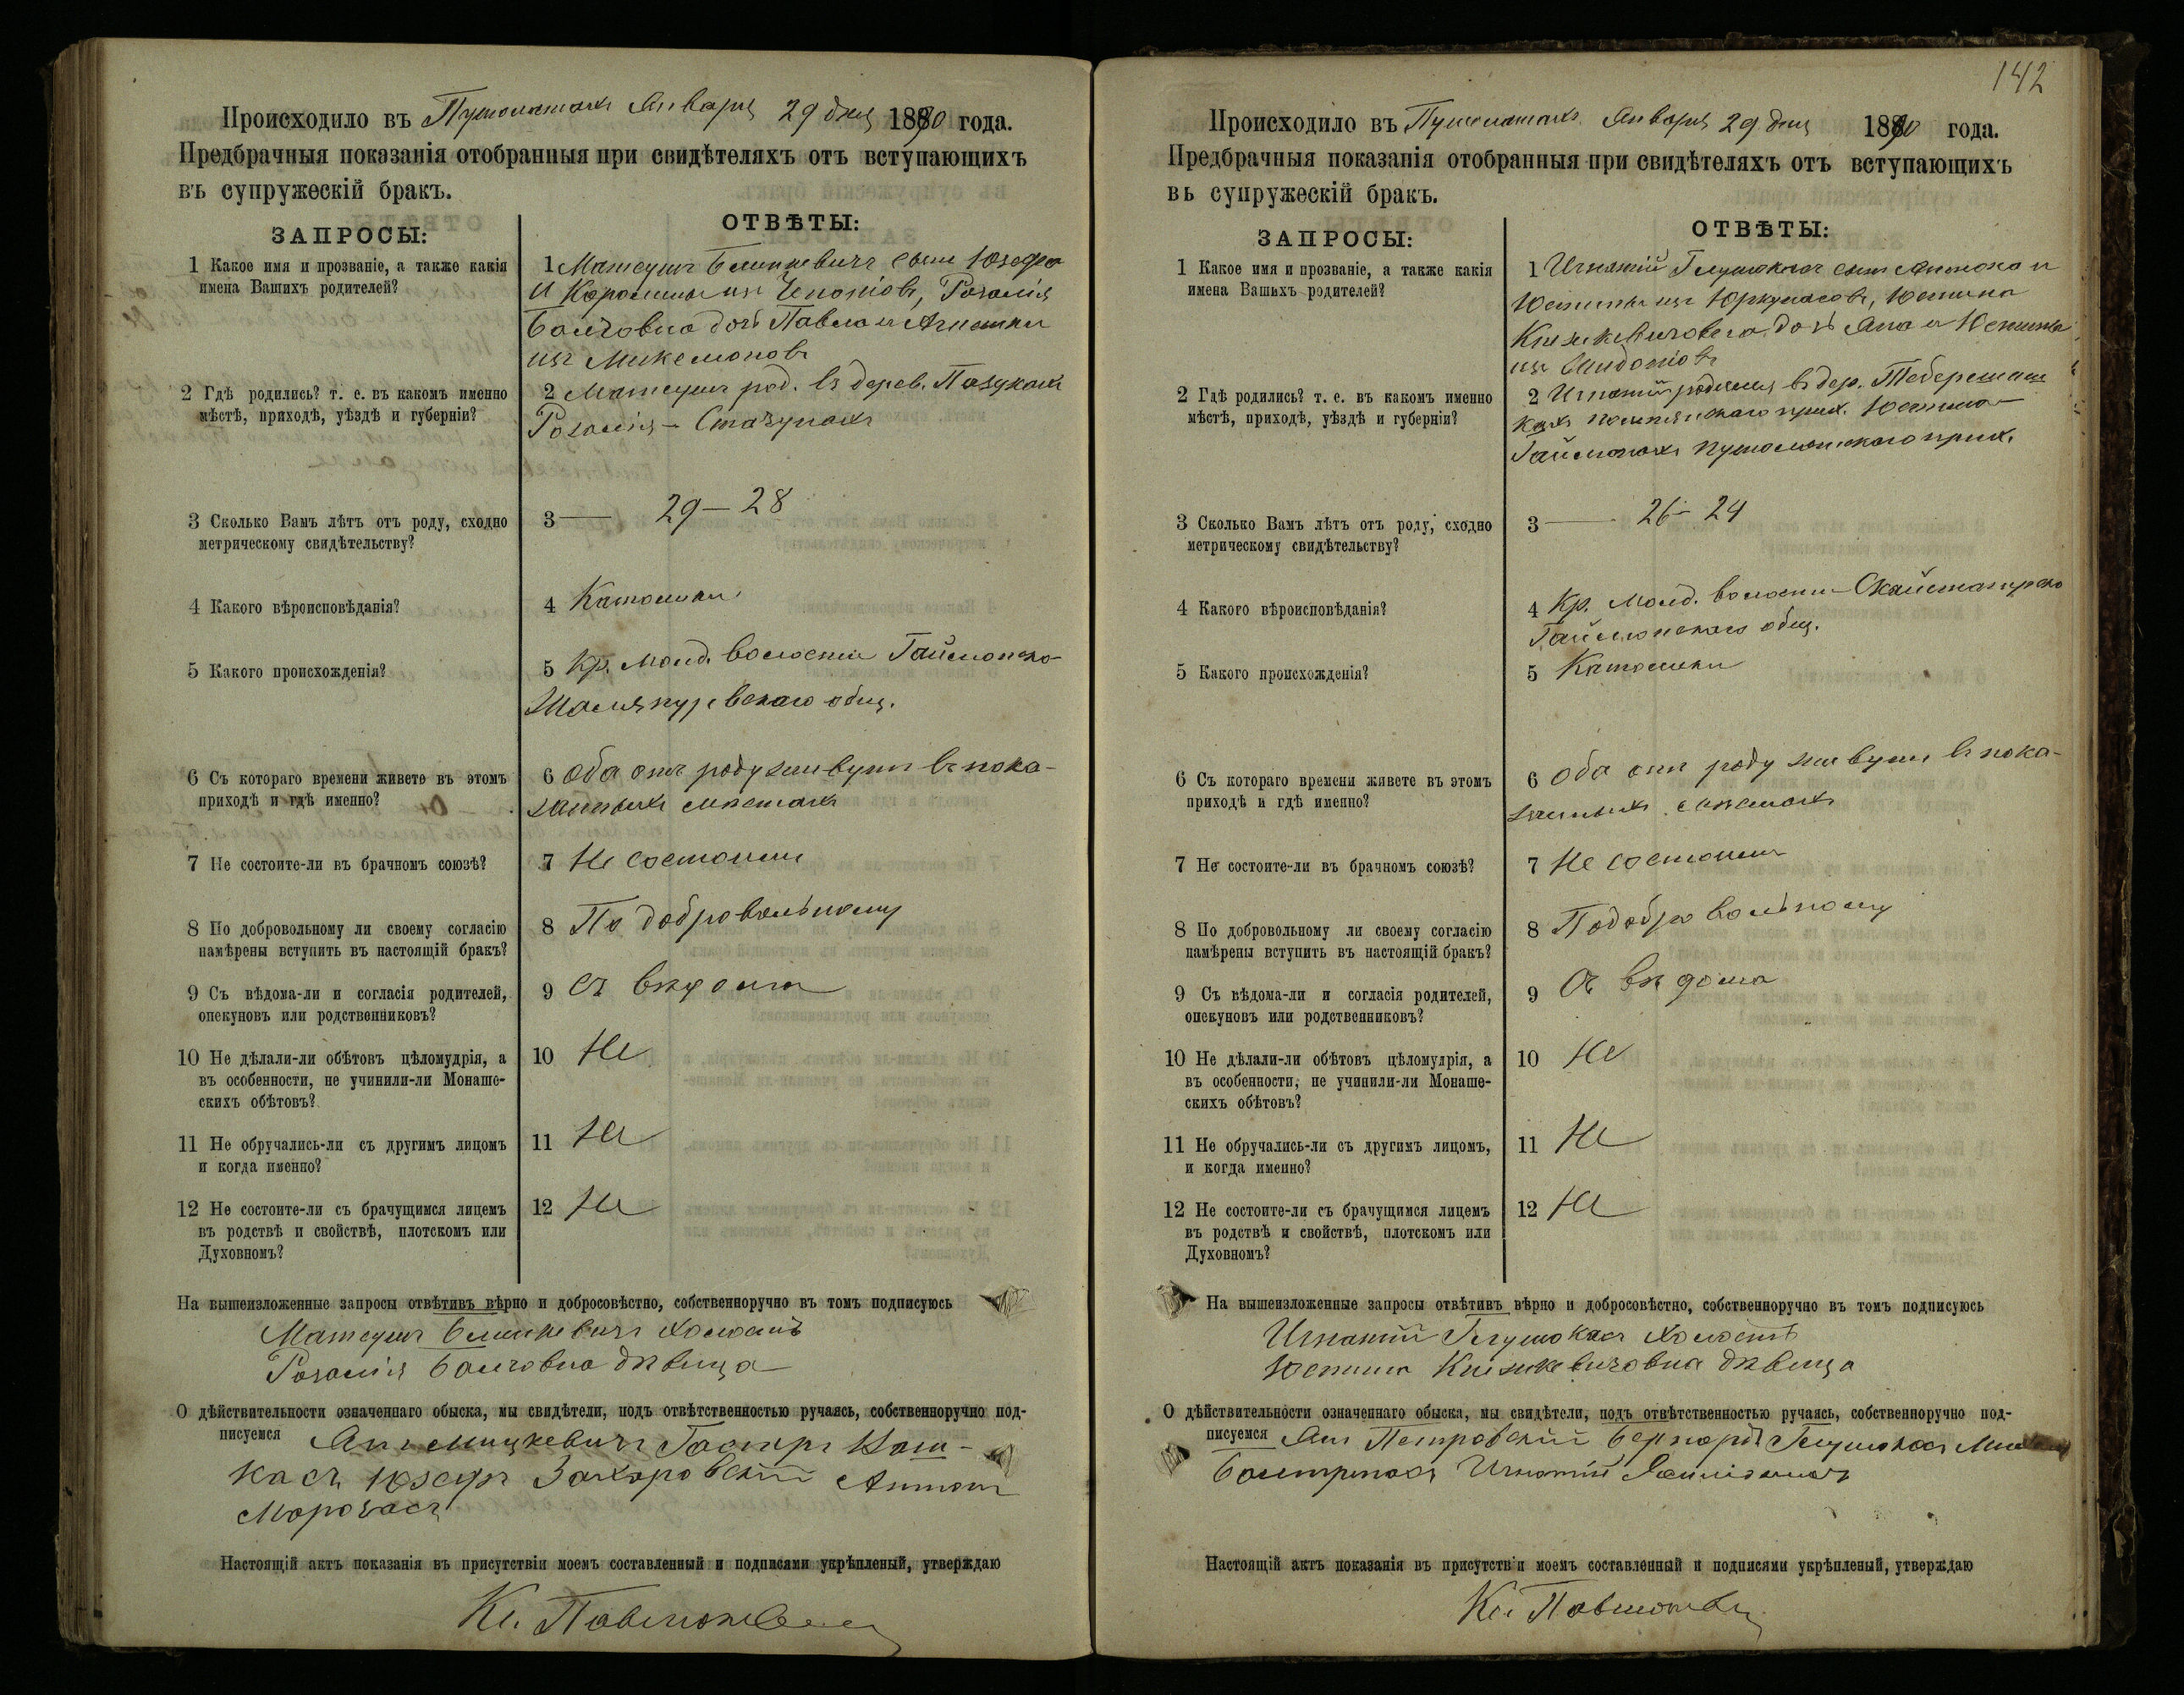 Происходило въ Пушолатахъ Января 29 дня 1890 года.
Предбрачныя показанія отобранныя при свидѣтеляхъ отъ вступающихъ
въ супружескій бракъ.
ЗАПРОСЫ:
ОТВѢТЫ:
1 Какое имя и прозваніе, а также какія
имена Вашихъ родителей?
1 Матеушъ сынъ Юзефа
и Каролины изъ Розалія
дочь Павла и
изъ
2 Гдѣ родились? т. е. въ какомъ именно
мѣстѣ, приходѣ, уѣздѣ и губерніи?
2 Матеушъ род. въ дерев.
Розалія —
3 Сколько Вамъ лѣтъ отъ роду, сходно
метрическому свидѣтельству?
3 — 29 — 28
4 Какого вѣроисповѣданія?
4 Католики
5 Какого происхожденія?
5 Кр. волости
общ.
6 Съ котораго времени живете въ этомъ
приходѣ и гдѣ именно?
6 Оба отъ роду живутъ въ пока-
занныхъ мѣстахъ
7 Не состоите-ли въ брачномъ союзѣ?
7 Не состоимъ
8 По добровольному ли своему согласію
намѣрены вступить въ настоящій бракъ?
8 По добровольному
9 Съ вѣдома-ли и согласія родителей,
опекуновъ или родственниковъ?
9 Съ вѣдома
10 Не дѣлали-ли обѣтовъ цѣломудрія, а
въ особенности, не учинили-ли Монаше-
скихъ обѣтовъ?
10 Не
11 Не обручались-ли съ другимъ лицомъ
и когда именно?
11 Не
12 Не состоите-ли съ брачущимся лицемъ
въ родствѣ и свойствѣ, плотскомъ или
Духовномъ?
12 Не
На вышеизложенные запросы отвѣтивъ вѣрно и добросовѣстно, собственноручно въ томъ подписуюсь
Матеушъ холостъ
Розалія дѣвица
О дѣйствительности означеннаго обыска, мы свидѣтели, подъ отвѣтственностью ручаясь, собственноручно под-
писуемся Янъ Мицкевичъ
Юзефъ Захаровскій Антонъ
Морозасъ
Настоящій актъ показанія въ присутствіи моемъ составленный и подписями укрѣпленый, утверждаю
Кс.
142
Происходило въ Пушолатахъ Января 29 дня 1890 года.
Предбрачныя показанія отобранныя при свидѣтеляхъ отъ вступающихъ
въ супружескій бракъ.
ЗАПРОСЫ:
ОТВѢТЫ:
1 Какое имя и прозваніе, а также какія
имена Вашихъ родителей?
1 Игнатій сынъ Антона и
Юстины изъ Юстина
дочь Яна и Юстины
изъ
2 Гдѣ родились? т. е. въ какомъ именно
мѣстѣ, приходѣ, уѣздѣ и губерніи?
2 Игнатій родился въ дер.
прих. Юстина —
Пушолатскаго прих.
3 Сколько Вамъ лѣтъ отъ роду, сходно
метрическому свидѣтельству?
3 — 26 — 24
4 Какого вѣроисповѣданія?
4 Кр. волости
общ.
5 Какого происхожденія?
5 Католики
6 Съ котораго времени живете въ этомъ
приходѣ и гдѣ именно?
6 Оба отъ роду живутъ въ пока-
занныхъ мѣстахъ
7 Не состоите-ли въ брачномъ союзѣ?
7 Не состоимъ
8 По добровольному ли своему согласію
намѣрены вступить въ настоящій бракъ?
8 По добровольному
9 Съ вѣдома-ли и согласія родителей,
опекуновъ или родственниковъ?
9 Съ вѣдома
10 Не дѣлали-ли обѣтовъ цѣломудрія, а
въ особенности, не учинили-ли Монаше-
скихъ обѣтовъ?
10 Не
11 Не обручались-ли съ другимъ лицомъ,
и когда именно?
11 Не
12 Не состоите-ли съ брачущимся лицемъ
въ родствѣ и свойствѣ, плотскомъ или
Духовномъ?
12 Не
На вышеизложенные запросы отвѣтивъ вѣрно и добросовѣстно, собственноручно въ томъ подписуюсь
Игнатій холостъ
Юстина дѣвица
О дѣйствительности означеннаго обыска, мы свидѣтели, подъ отвѣтственностью ручаясь, собственноручно под-
писуемся Янъ Петровскій Бернардъ
Игнатій
Настоящій актъ показанія въ присутствіи моемъ составленный и подписями укрѣпленый, утверждаю
Кс.